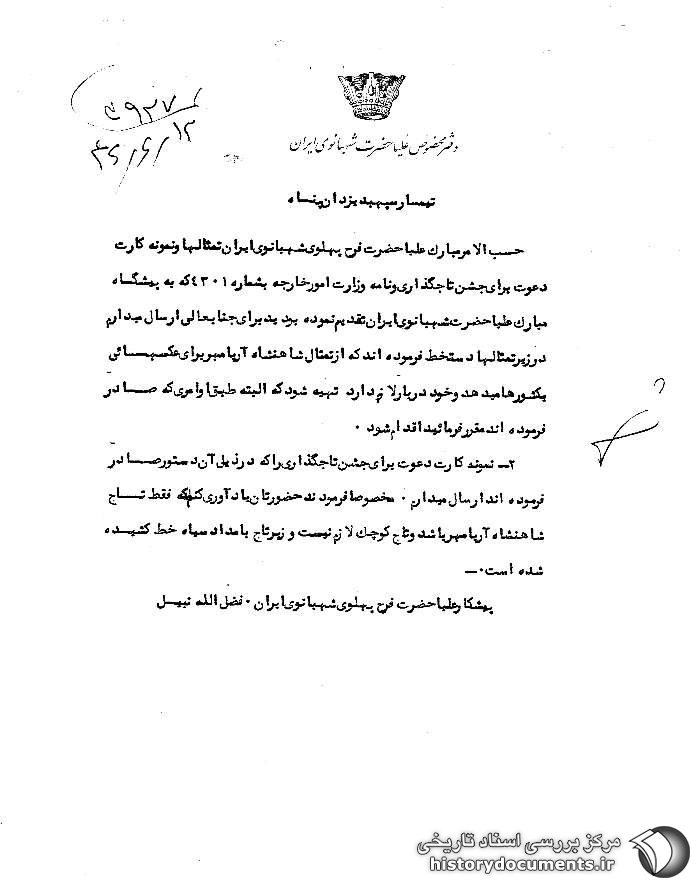 ۴۹۲۷
۴۶/۶/۱۲
دفتر مخصوص علیاحضرت شهبانوی ایران
تیمسار سپهبد یزدان پناه
حسب الامر مبارك علیا حضرت فرح پهلوی شهبانوی ایران تمثالها و نمونه کارت
دعوت برای جشن تاجگذاری و نامه وزارت امور خارجه بشماره ۴۳۰۱ که به پیشگاه
مبارك علیا حضرت شهبانوی ایران تقدیم نموده بودید برای جنابعالی ارسال میدارم
در زیر تمثالها دستخط فرموده اند که از تمثال شاهنشاه آریا مهر برای عکسهائی
بکشورها میدهد و خود دربار لازم دارد تهیه شود که البته طبق اوامری که صادر
فرموده اند مقرر فرمائید اقدام شود ۰
۲ـ نمونه کارت دعوت برای جشن تاجگذاری را که در ذیل آن دستور صادر
فرموده اند ارسال میدارم ۰ مخصوصا فرمودند حضورتان یادآوری کنم که فقط تاج
شاهنشاه آریا مهر باشد وتاج کوچك لازم نیست و زیر تاج با مداد سیاه خط کشیده
شده است ۰ـ
پیشکار علیا حضرت فرح پهلوی شهبانوی ایران ۰ فضل الله نبیل
مرکز بررسی اسناد تاریخی
historydocuments.ir